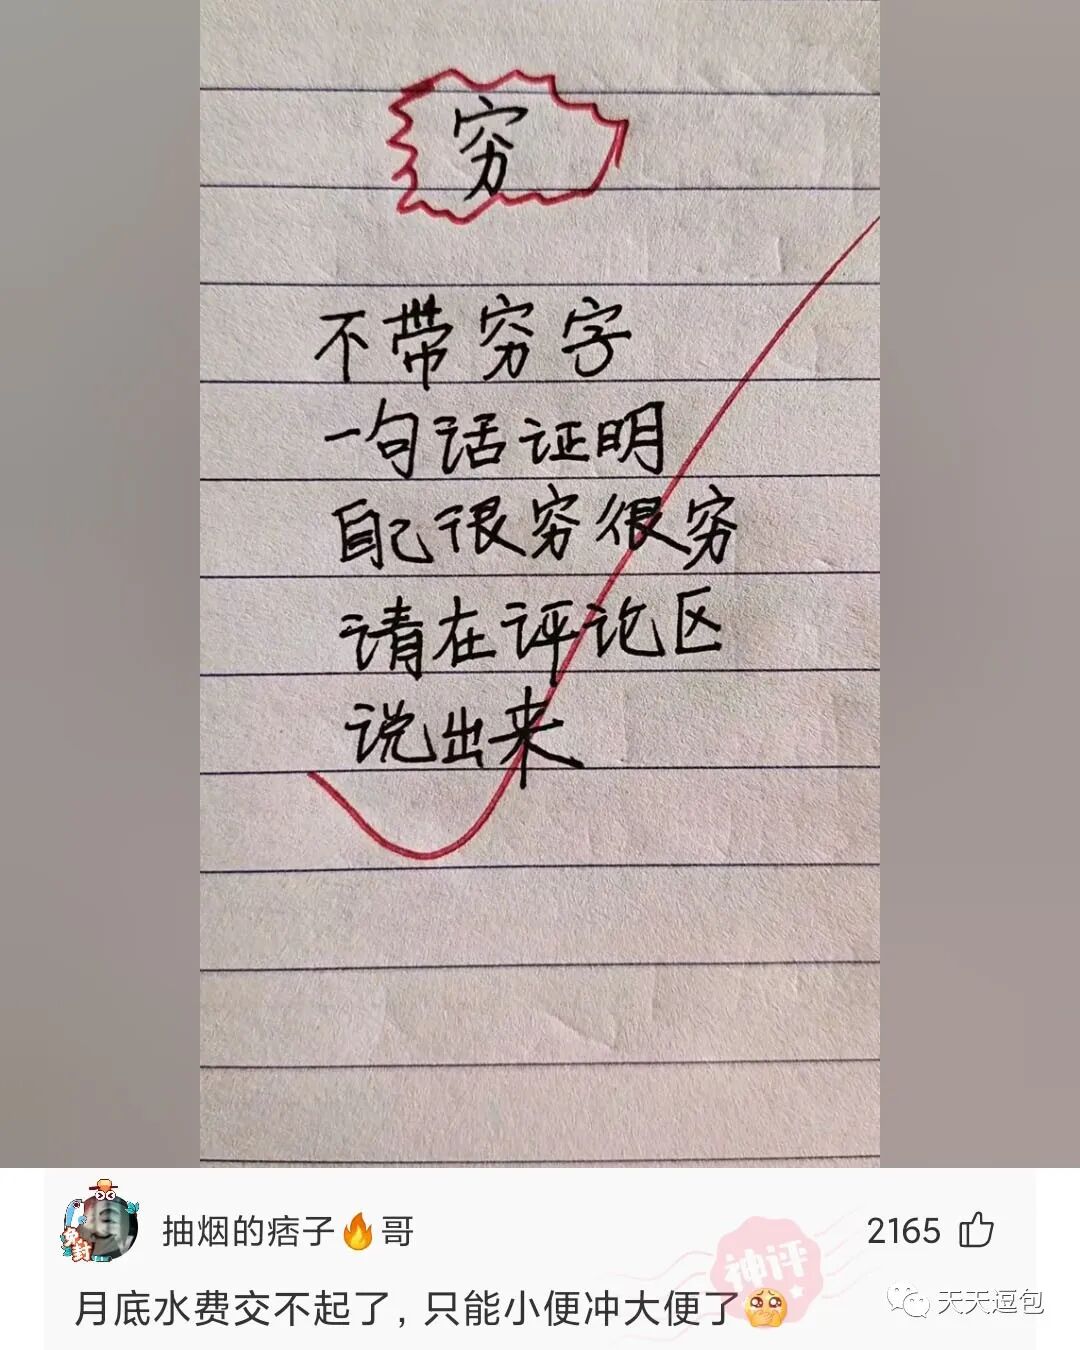 穷
不带穷字
一句话证明
自己很穷很穷
请在评论区
说出来
免封
抽烟的痞子🔥哥
2165
神评
月底水费交不起了,只能小便冲大便了🥺
天天逗包